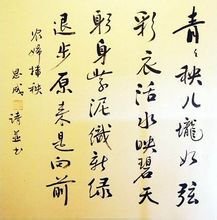 青々秧儿壠如弦
彩衣活水映碧天
躬身紫泥織新绿
退步原来是向前
农婦插秧
思成 诗並书